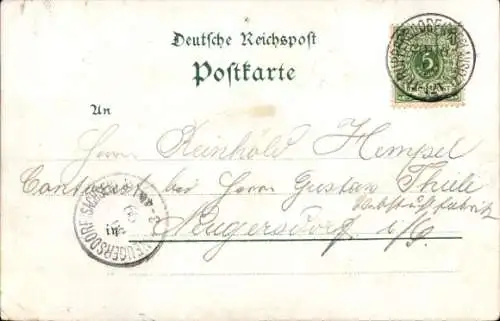 Deutsche Reichspost
Postkarte
5
An
Herrn Reinhold Hempel
Contorist bei Herrn Gustav Thiele
Neugersdorf i/S
NEUGERSDORF (SACHSEN)